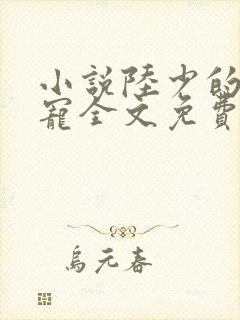 小説陸少的
寵全文免費
烏元春